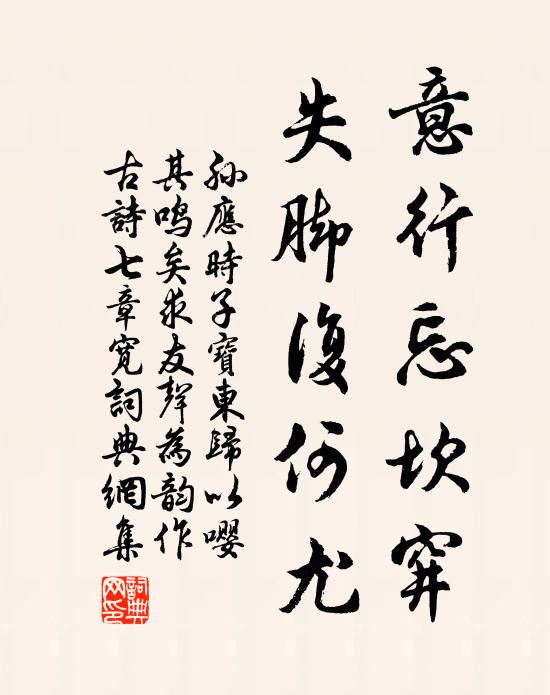 意行忘坎穽
失脚復何尤
孫應時子寶東歸以嚶
其鳴矣求友聲為韵作
古詩七章寛詞典網集
詞典网印